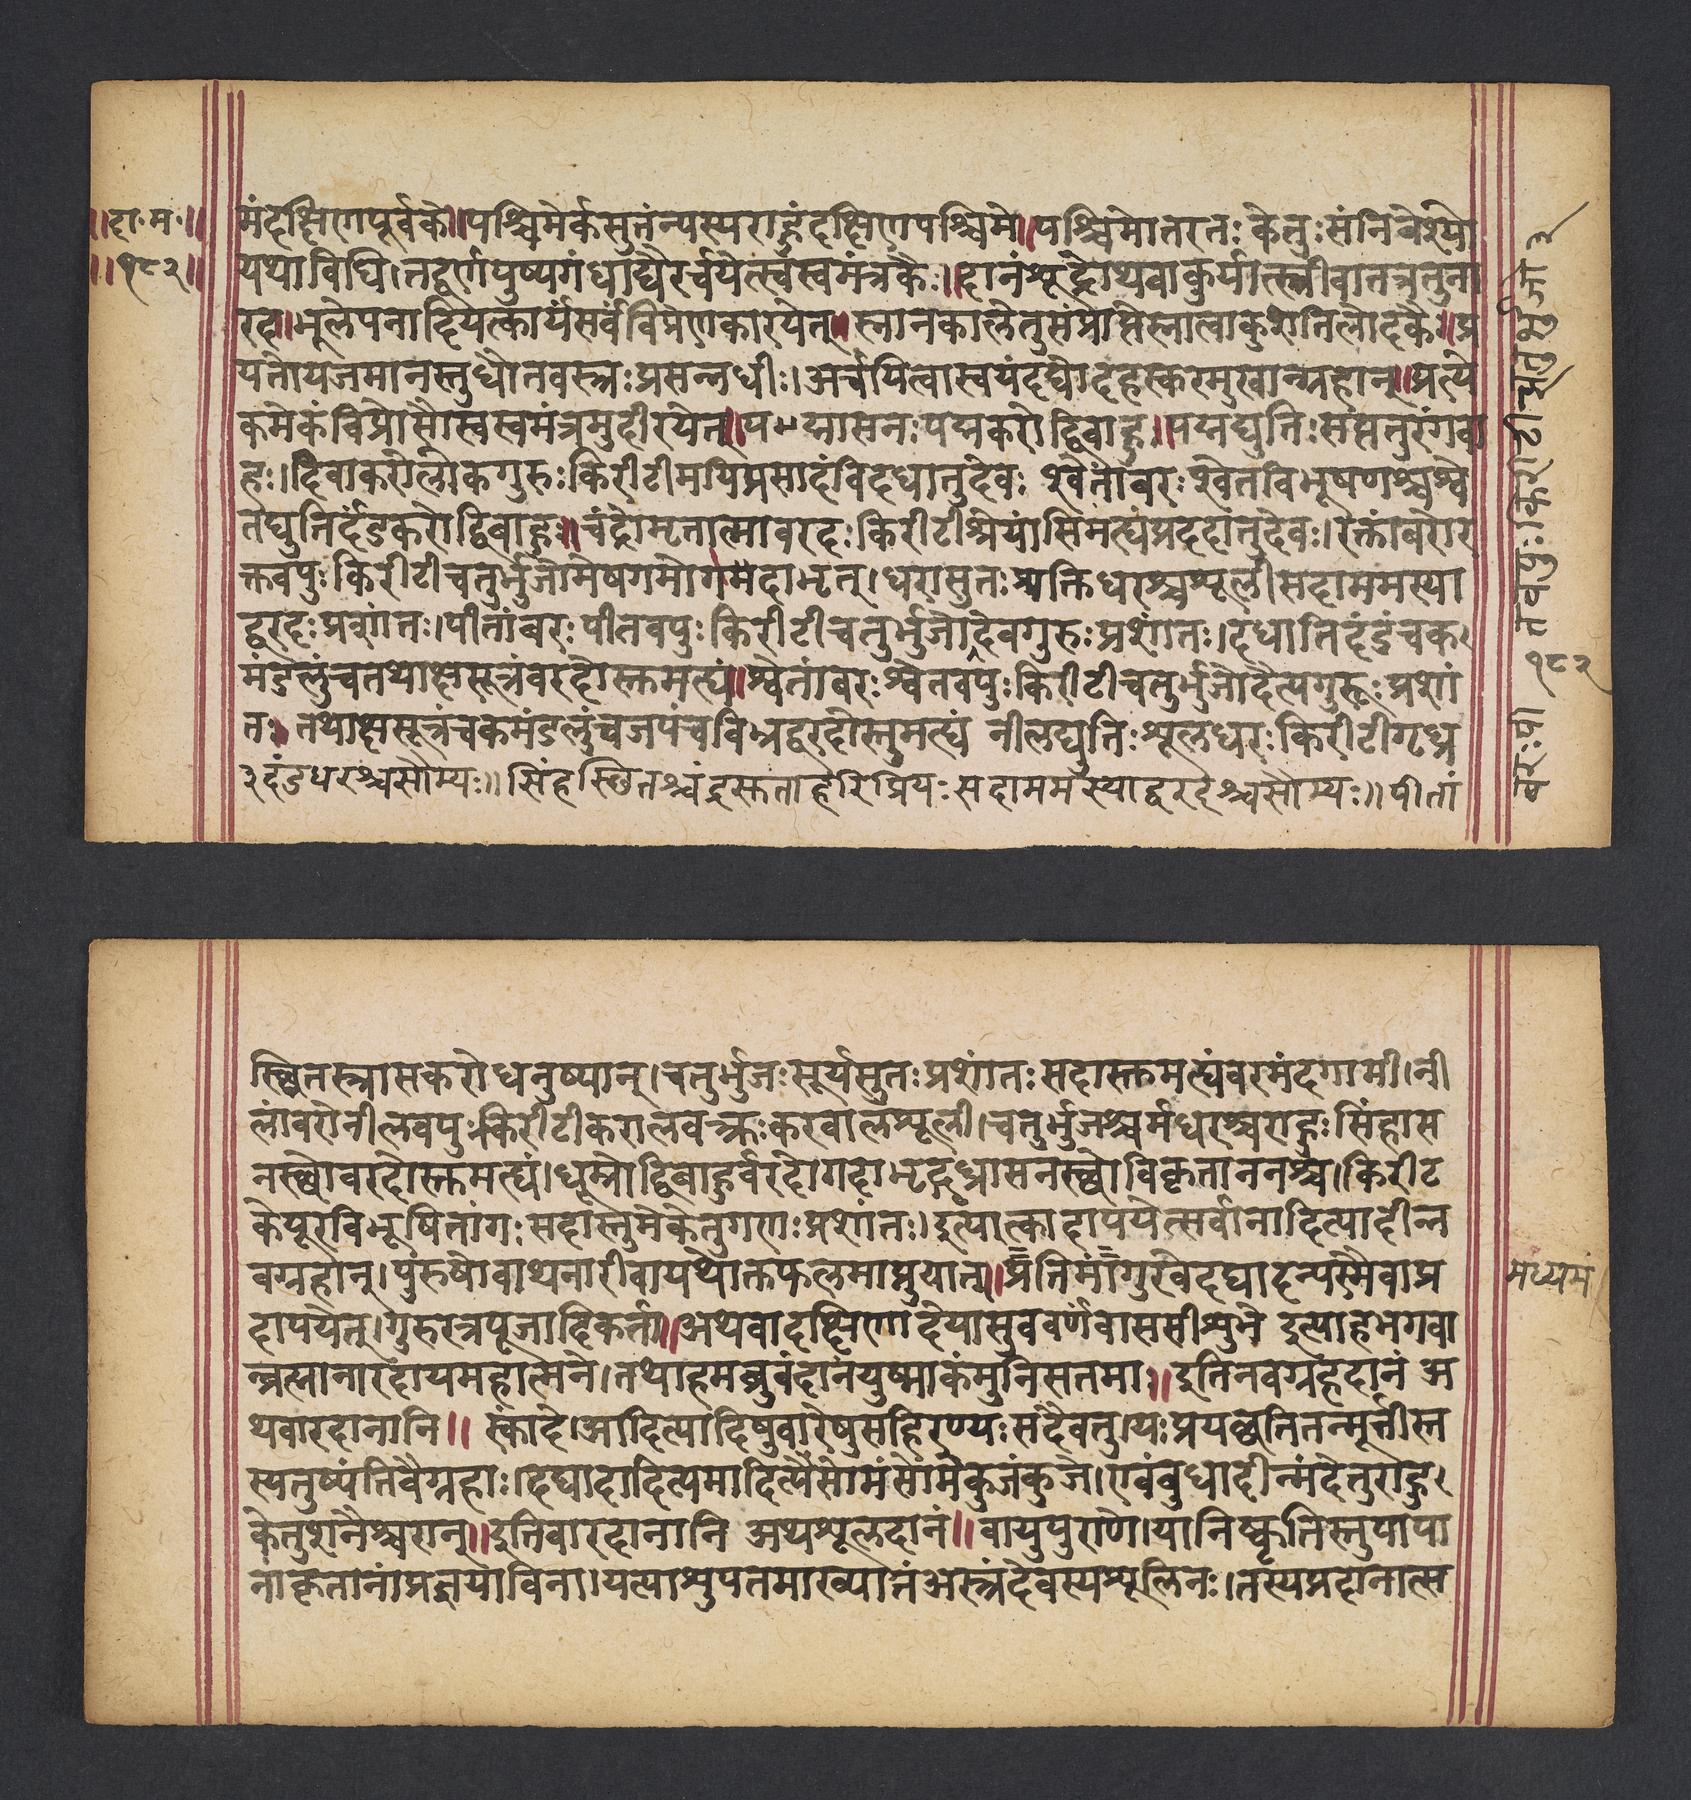 ॥दा॰म॰॥
॥१८२॥
मंदक्षिणपूर्वके॥पश्चिमेर्कसुतंन्यस्यराहुंदक्षिणपश्चिमे॥पश्चिमोतरतःकेतुःसंनिवेश्यो
यथाविधि।तद्वर्णपुष्पगंधाद्यैरर्चयेत्स्वस्वमंत्रकैः॥दानंशूद्रोथवाकुर्यात्स्त्रीवातत्रतुना
रद॥भूलेपनादियत्कार्यंसर्वंविप्रेणकारयेत्॥स्नानकालेतुसंप्राप्तेस्नात्वाकुशतिलोदकैः॥प्र
यतोयजमानस्तुधौतवस्त्रःप्रसन्नधीः।अर्चयित्वास्वयंदद्यादहस्करमुखान्ग्रहान्॥प्रत्ये
कमेकंविप्रोसौस्वस्वमंत्रमुदीरयेत्॥पद्मासनःपद्मकरोद्विबाहुः॥पद्मद्युतिःसप्ततुरंगवा
हः।दिवाकरोलोकगुरुःकिरीटीमयिप्रसादंविदधातुदेवः श्वेतांबरःश्वेतविभूषणश्चश्वे
तद्युतिर्दंडकरोद्विबाहुः॥चंद्रोमृतात्मावरदःकिरीटीश्रेयांसिमह्यंप्रददातुदेवः।रक्तांबरोर
क्तवपुःकिरीटीचतुर्भुजोमेषगमोगमदाभृत्।धरासुतःशक्तिधरश्चशूलीसदाममस्या
द्वरदःप्रशांतः।पीतांबरःपीतवपुःकिरीटीचतुर्भुजोदेवगुरुःप्रशांतः।दधातिदंडंचक
मंडलुंचतथाक्षसूत्रंवरदोस्तमह्यं॥श्वेतांबरःश्वेतवपुःकिरीटीचतुर्भुजोदैत्यगुरुःप्रशां
तः तथाक्षसूत्रंचकमंडलुंचजपंचबिभ्रद्वरदोस्तुमह्यं नीलद्युतिःशूलधरःकिरीटीगृध्र
२दंडधरश्चसौम्यः॥सिंहस्थितश्चंद्रस्तताहरिप्रियःसदाममस्याद्वरदश्चसौम्यः॥पीतां
बरःपी
१८२
स्थितस्त्रासकरोधनुष्मान्।चतुर्भुजःसूर्यसुतःप्रशांतःसदास्तमह्यंवरमंदगामी।नी
लांबरोनीलवपुःकिरीटीकरालवक्त्रःकरवालशूली।चतुर्भुजश्चर्मधरश्चराहुःसिंहास
नस्थोवरदोस्तमह्यं।धूम्रोद्विबाहुर्वरदोगदाभृद्गृध्रासनस्थोविकृताननश्च।किरीट
केयूरविभूषितांगःसदास्तुमेकेतुगणःप्रशांतः।इत्युत्काहापयेत्सर्वानादित्यादीन्न
वग्रहान्।पुरुषोवाथनारीवायथोक्तफलमाप्नुयात्॥प्रतिमांगुरवेदद्यादन्यस्मैवाप्र
मध्यमं
दापयेत्।गुरुस्त्रपूजादिकर्त्ता॥अथवादक्षिणादेयासुववर्णवाससीशुभे इत्याहभगवा
न्ब्रह्मानारदायमहात्मने।तथाहमब्रुवंदानंयुष्माकंमुनिसतमाः॥इतिनवग्रहदानं अ
थवारदानानि॥ स्कांदे।आदित्यादिषुवारेषुसहिरण्यःसदैवतु।यःप्रयछतितन्मूर्तीस्त
स्यतुष्यंतिवैग्रहाः।दद्यादादित्यमादित्येसोमंसोमेकुजंकुजे।एवंबुधादीन्मंदेतुराहु
केतुशनैश्चरान्॥इतिवारदानानि अथशूलदानं॥वायुपुराणे।यानिष्कृतिस्तुपापा
नांकृतानांप्रज्ञयाविना।यत्पाशुपतमाख्यातंअस्त्रंदेवस्यशूलिनः।तस्यप्रदानात्स